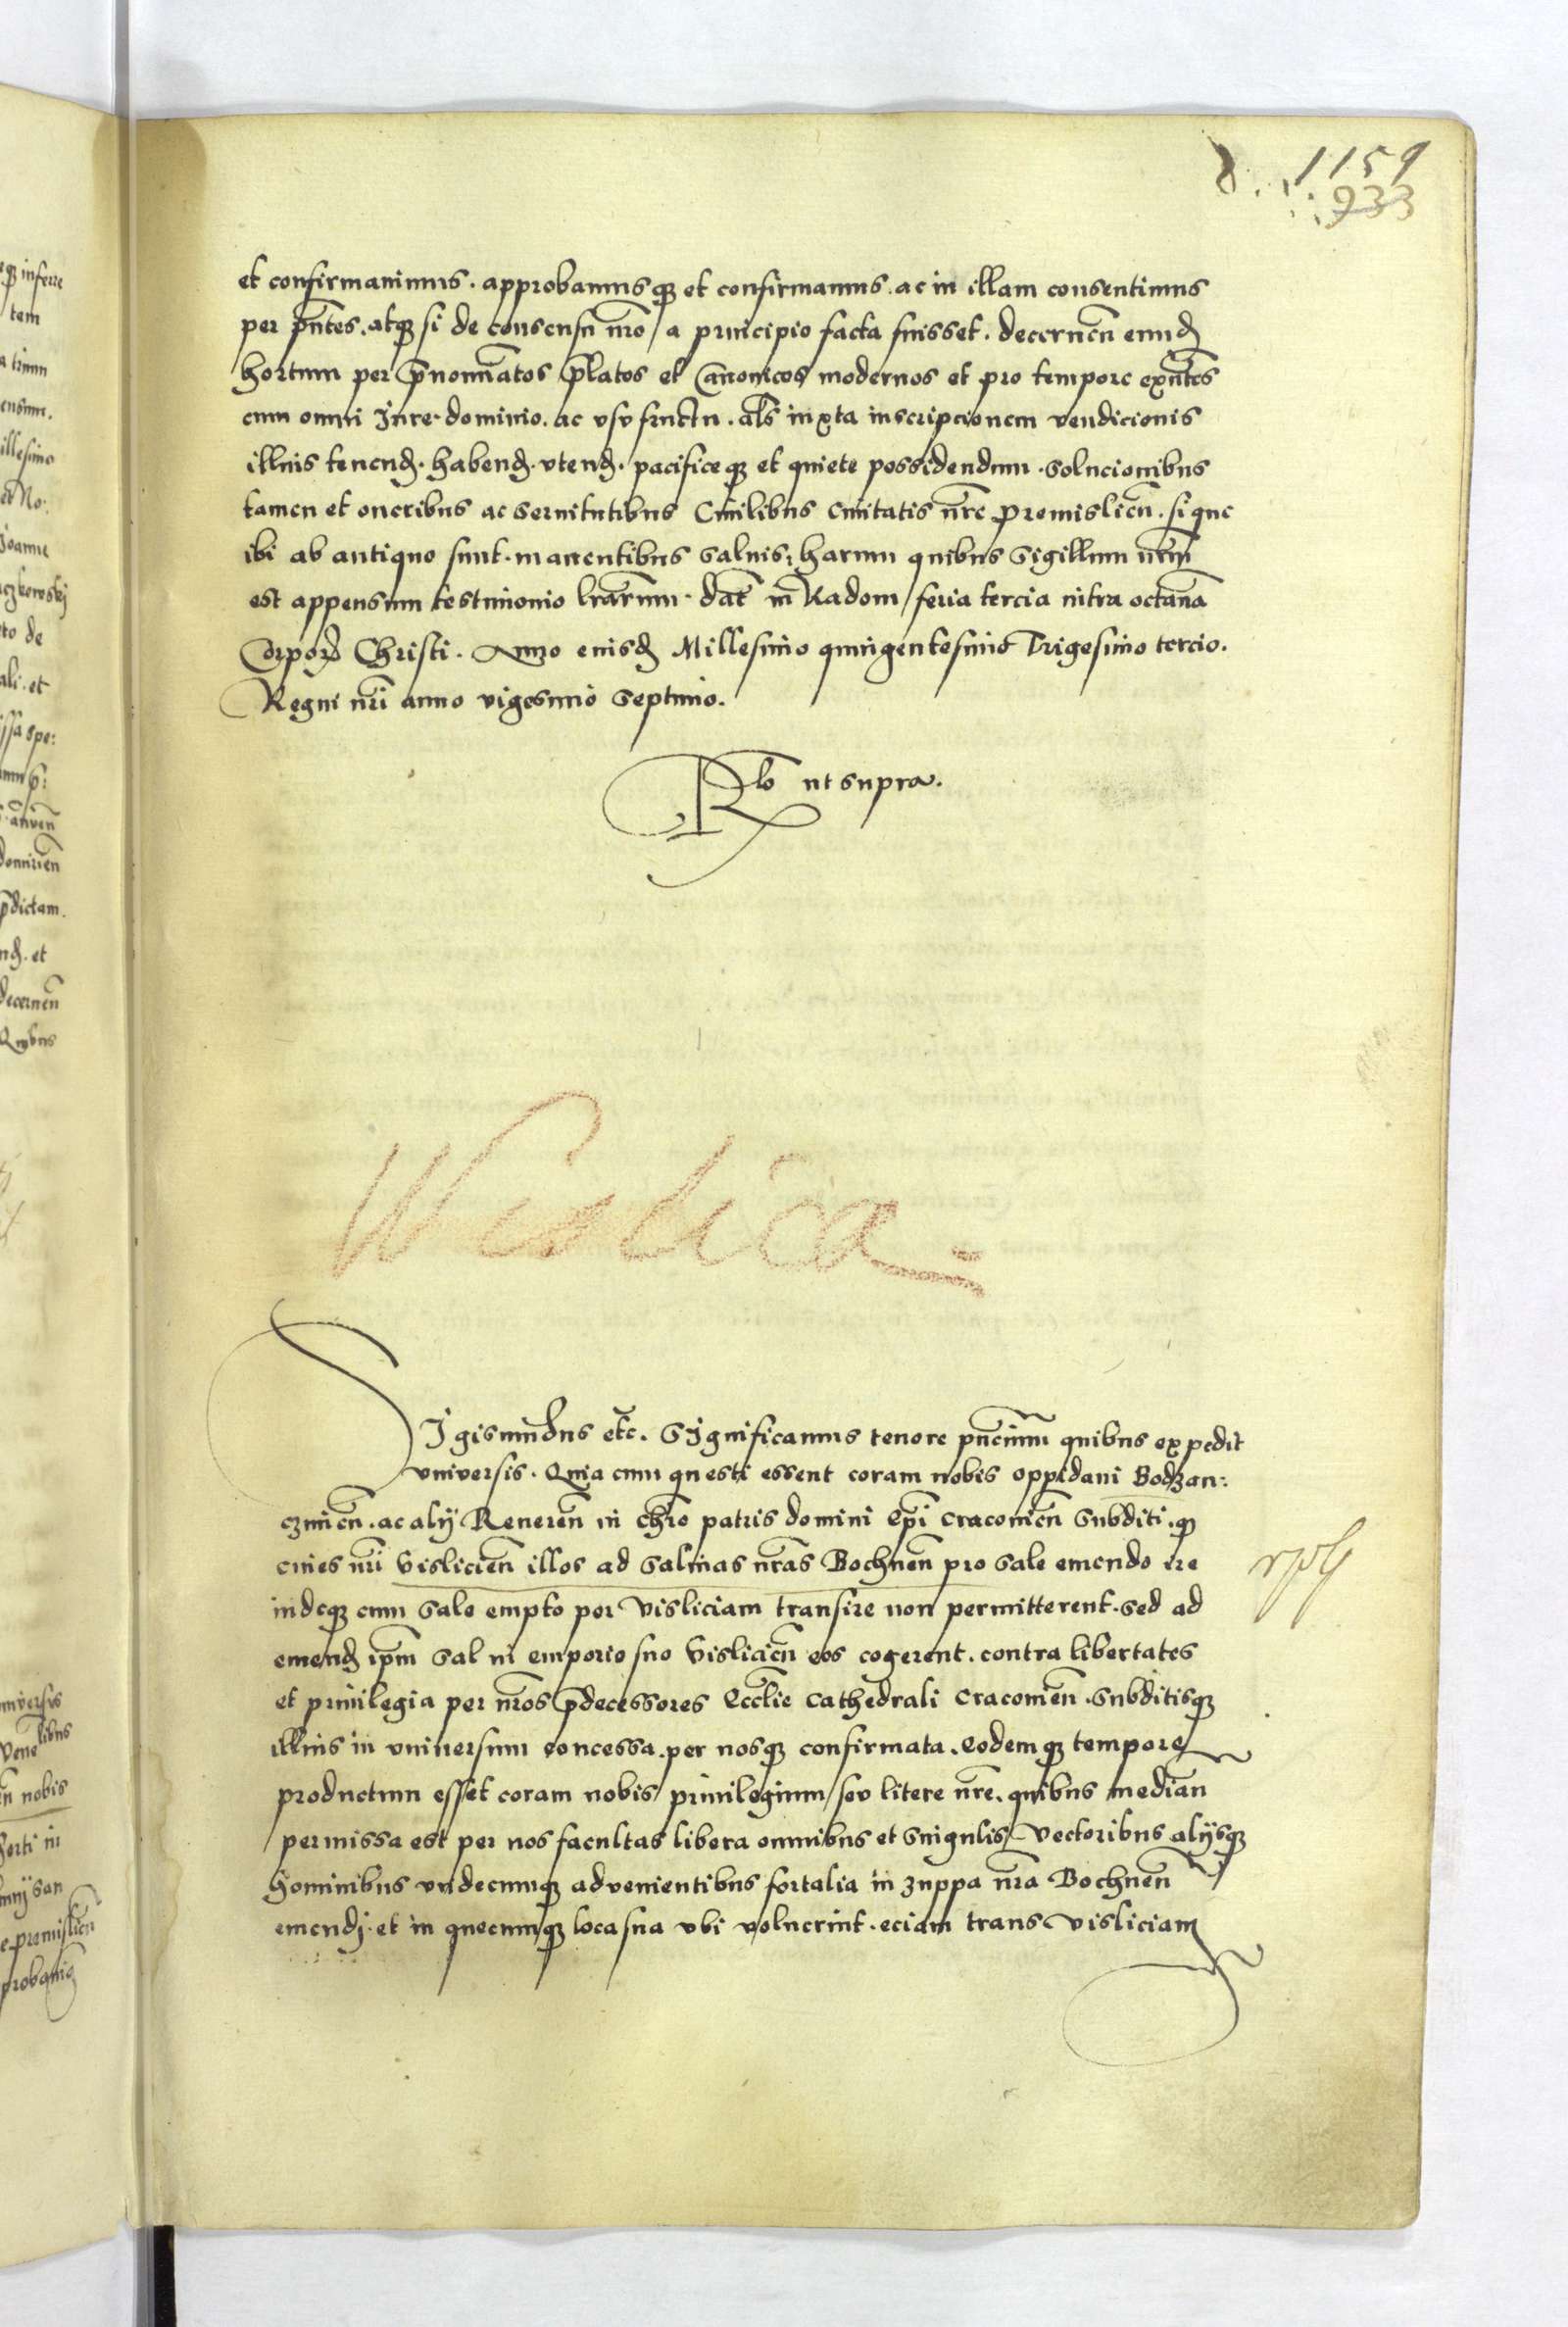 1159
933
et confirmavimus. approbamusq3 et confirmamus. ac in illam consentimus
per pñtes. atq3 si de consensu nr̃o / a principio facta fuisset. decerneñ eund
hortum per p̃nominatos p̃latos et Canonicos modernos et pro tempore exñtes
cum omni Jure. dominio. ac vsv fructu. al̃s iuxta inscripcionem vendicionis
illius tenend. habend. vtend. pacificeq3 et quiete possidendum. solucionibus
tamen et oneribus ac servitutibus Civilibus civitatis nr̃e premislieñ. si que
ibi ab antiquo sunt. manentibus salvis. harum quibus sigillum nr̃m
est appensum testimonio lr̃arum. dat̃ in Radom / feria tercia infra octava
Corporis Christi. Anno eiusd Millesimo quingentesimo Trigesimo tercio.
Regni nr̃i anno vigesimo septimo.
Rlo ut supra.
Wislica
Sigismundus etc̃. Significamus tenore pñcium quibus expedit
vniversis. Quia cum questi essent coram nobis oppidani Bodzan:
czinieñ. ac alij Revereñ in chr̃o patris domini Ep̃i Cracovieñ subditi. q3
cives nr̃i Vislicieñ illos ad salinas nr̃as Bochneñ pro sale emendo ire
indeq3 cum sale empto per Visliciam transire non permitterent. sed ad
emend ip̃m sal in emporio suo Vislicieñ eos cogerent. contra libertates
et privilegia per nr̃os p̃decessores Eccl̃ie Cathedrali Cracovieñ. subditisq3
illius in vniversum concessa. per nosq3 confirmata. Eodemq3 tempore
productum esset coram nobis / privilegium / sev litere nr̃e. quibus mediañ
permissa est per nos facultas libera omnibus et singulis vectoribus alijsq3
hominibus vndecunq3 advenientibus fortalia in zuppa nr̃a Bochneñ
emendj. et in quecunq3 loca sua vbi voluerint. eciam trans Visliciam